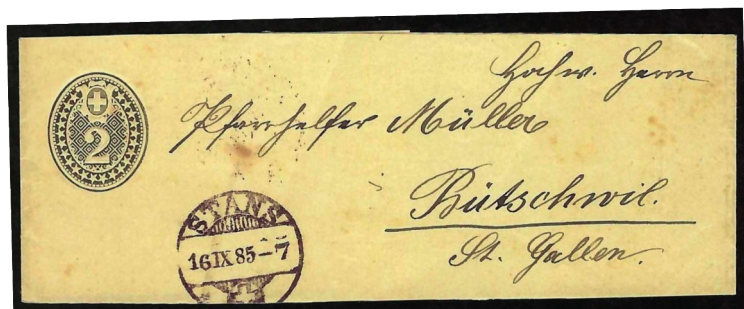 2
Hochw. Herrn
Pfarrhelfer Müller
Bütschwil.
St. Gallen.
STANS
16 IX 85 – 7